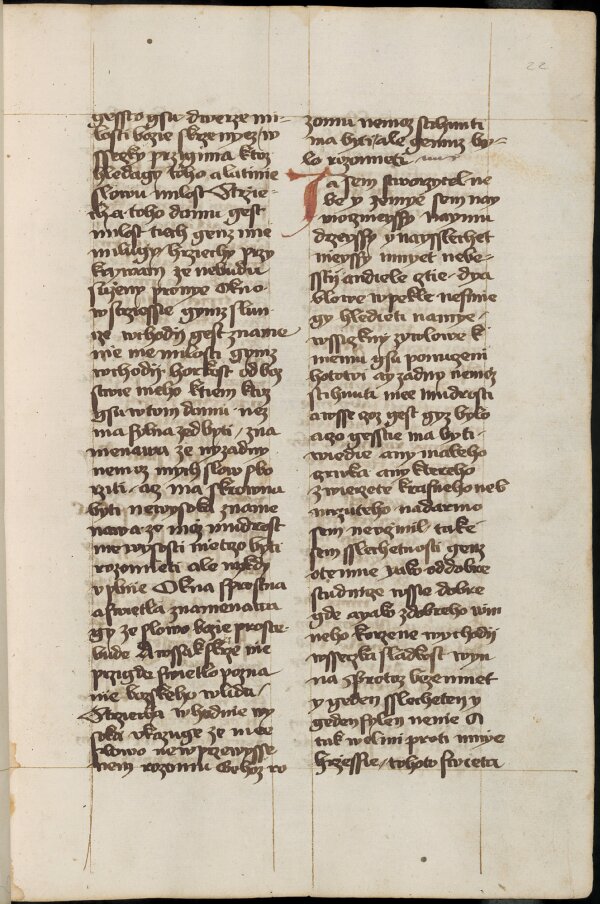 22
gessto gsu dwerze mi-
losti bozie skrze nyez w
ssyczky przigima ktoz
hledagy toho a lutinie
slowu milost Strzie-
cha toho domu gest
milost tiech genz mie
milugy hrziechy przy
krywam ze nebudu
suzeny pro nye Okno
w strziessie gymz slun
ze wchodij gest zname
nie me milosti gymz
wchodij horkost od boz
stwie meho k tiem ktoz
gsu w tom domu nez
ma sylna zed byti zna
menawa ze nyzadny
nemoz mych slow zbo
rziti az ma skrowna
byti newysoka zname
nawa ze moz mudrost
me wysosti nieczo byti
rozomieti ale nikdy
vplnie Okna sprostna
a swietla znamenawa
gy ze slowo bozie proste
bude A wssak skrze nie
przigde swietlo pozna
nie bozskeho w lidu
Strziecha w hodnie wy
soka vkazuge ze me
slowo ne w przewysse
nem rozomu Gehoz ro
zomu nemoz stihnuti
ma byti ale gemuz by-
lo rozomieti
Ja sem stworzytel ne
be y zemye sem nay
mozniessy naymu
drzeyssy y nayslechet
nieyssy mnyet nebe-
sstij andiele ctie dya
blowe w pekle nesmie
gy hledieti na mye
wssiczkny zywlowe k
memu gsu ponuzeni
hotowi ayzadny nemoz
stihnuti mee mudrosti
a wsse coz gest gyz bylo
a czo gesstie ma byti
wiedie any nakeho
czrwka any ktereho
zwierzete krasneho neb
mrzuteho nadarmo
sem nevczinil take
sem sslechetnosti genz
ote mne yako od dobre
studnicze wssie dobre
gde a yak z dobreho win
neho korzene wychodij
wsseczka sladkost wyn
na Protoz beze mnet
y geden sslecheten y
geden sylen nenie A
tak welmi proti mnye
hrzessie tohoto swieta